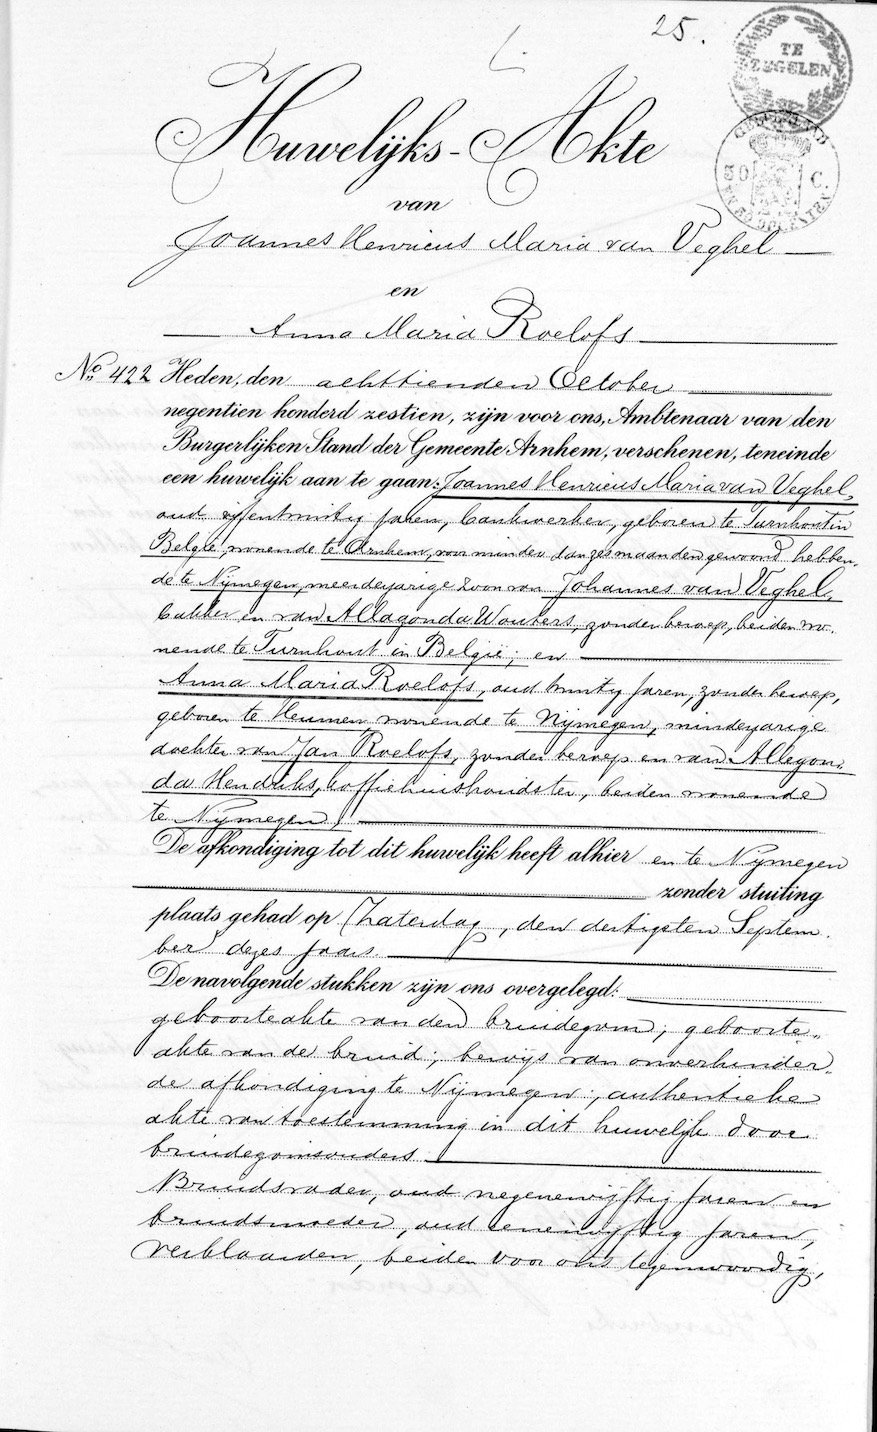 25.
TE
ZEGELEN
50 C.
Huwelijks-Akte
van
Joannes Henricus Maria van Veghel
en
Anna Maria Roelofs
No. 422 Heden, den achttienden October
negentien honderd zestien, zijn voor ons, Ambtenaar van den
Burgerlijken Stand der Gemeente Arnhem, verschenen, teneinde
een huwelijk aan te gaan: Joannes Henricus Maria van Veghel,
oud vijfentwintig jaren, bankwerker, geboren te Turnhout in
België, wonende te Arnhem, voor minder dan zes maanden gewoond hebben-
de te Nijmegen, meerderjarige zoon van Johannes van Veghel,
bakker en van Allagonda Wouters, zonder beroep, beiden wo-
nende te Turnhout in België; en
Anna Maria Roelofs, oud twintig jaren, zonder beroep,
geboren te Heumen, wonende te Nijmegen, minderjarige
dochter van Jan Roelofs, zonder beroep en van Allegon-
da Hendriks, koffiehuishoudster, beiden wonende
te Nijmegen;
De afkondiging tot dit huwelijk heeft alhier en te Nijmegen
zonder stuiting
plaats gehad op Zaterdag, den dertigsten Septem-
ber dezes jaars.
De navolgende stukken zijn ons overgelegd:
geboorteakte van den bruidegom; geboorte-
akte van de bruid; bewijs van onverhinder-
de afkondiging te Nijmegen; authentieke
akte van toestemming in dit huwelijk door
bruidegomsouders
Bruidsvader, oud negenenvijftig jaren en
bruidsmoeder, oud eenenvijftig jaren,
verklaarden, beiden voor ons tegenwoordig,